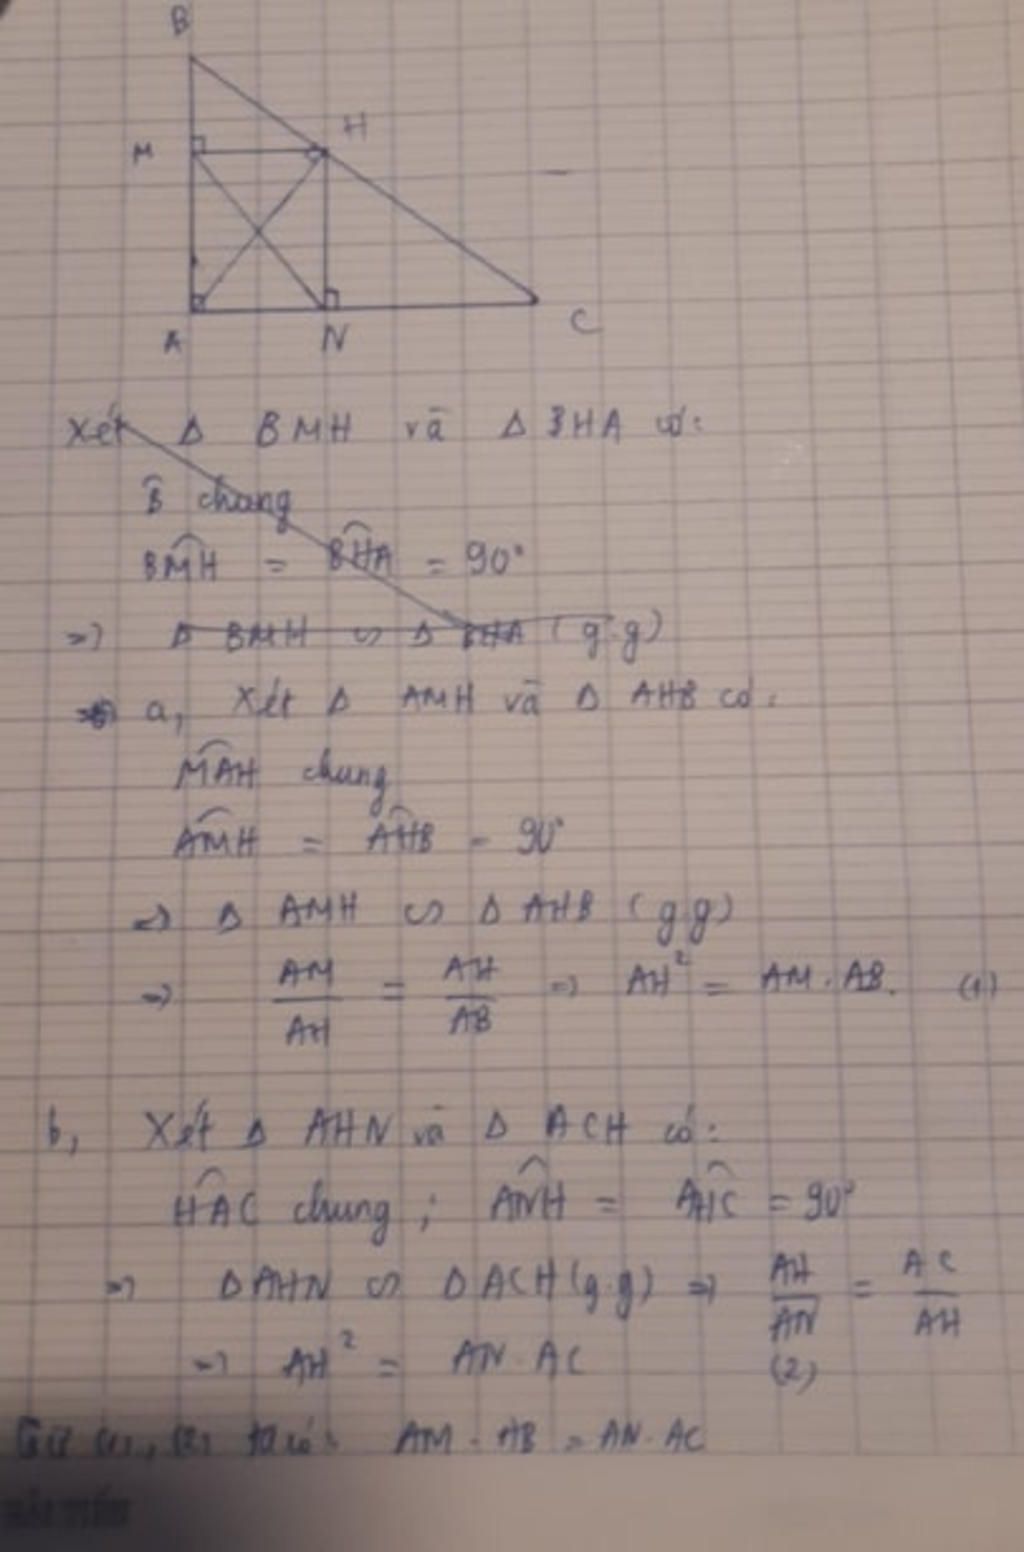 B
M
H
A
N
C
Xét Δ BMH và Δ BHA có:
B̂ chung
BMH = BHA = 90°
=> Δ BMH ∽ Δ BHA (g.g)
a, Xét Δ AMH và Δ AHB có:
MAH chung
AMH = AHB = 90°
=> Δ AMH ∽ Δ AHB (g.g)
=> AM/AH = AH/AB => AH² = AM . AB. (1)
b, Xét Δ AHN và Δ ACH có:
HAC chung ; ANH = AHC = 90°
=> Δ AHN ∽ Δ ACH (g.g) => AH/AN = AC/AH
=> AH² = AN . AC (2)
Từ (1), (2) ta có: AM . AB = AN . AC